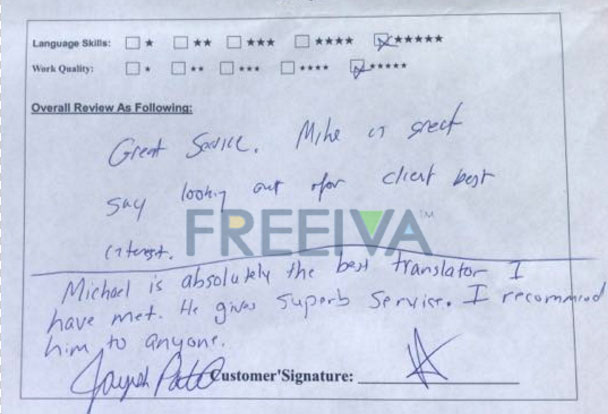 Language Skills: ★ ★★ ★★★ ★★★★ ★★★★★
Work Quality: ★ ★★ ★★★ ★★★★ ★★★★★
Overall Review As Following:
Great Service. Mike is great
say looking out for client best
interest.
FREEIVA™
Michael is absolutely the best translator I
have met. He gives superb service. I recommend
him to anyone.
Customer'Signature: